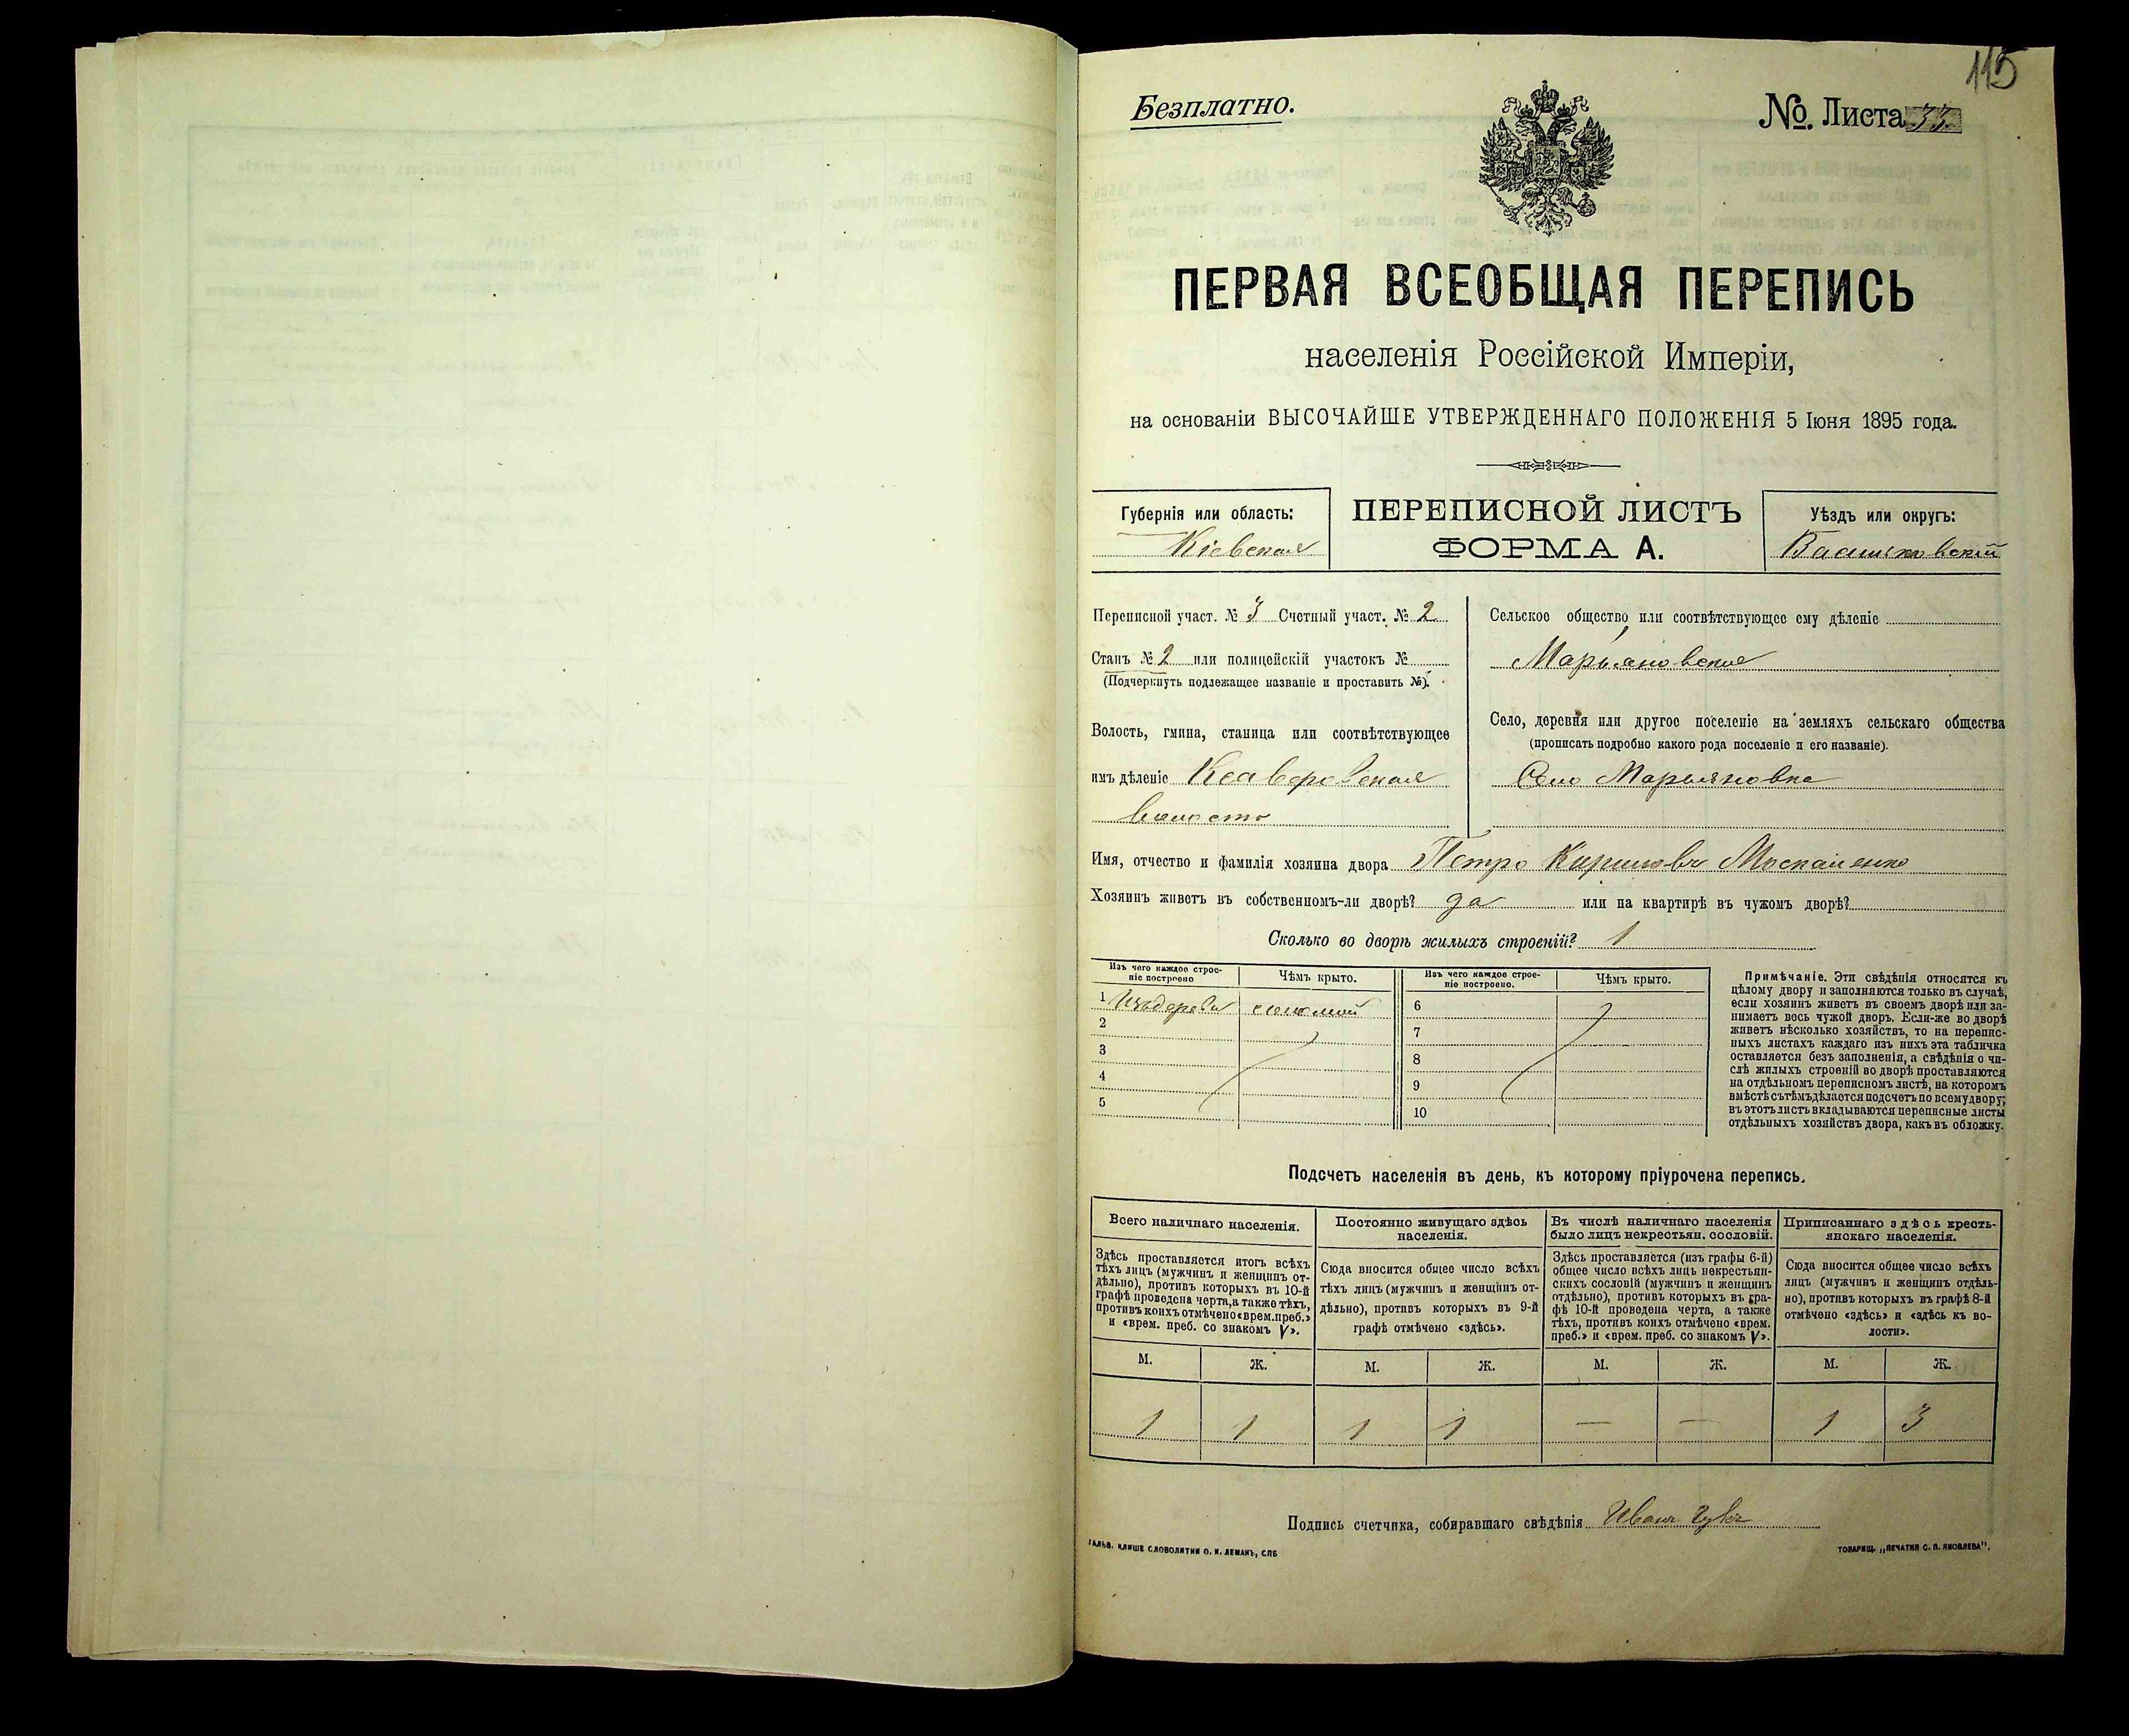 115
Безплатно.
№. Листа 33
ПЕРВАЯ ВСЕОБЩАЯ ПЕРЕПИСЬ
населенія Россійской Имперіи,
на основаніи ВЫСОЧАЙШЕ УТВЕРЖДЕННАГО ПОЛОЖЕНІЯ 5 Іюня 1895 года.
Губернія или область:
Кіевская
ПЕРЕПИСНОЙ ЛИСТЪ
ФОРМА А.
Уѣздъ или округъ:
Васильковскій
Переписной участ. № 3 Счетный участ. № 2
Станъ № 2 или полицейскій участокъ №
(Подчеркнуть подлежащее названіе и проставить №).
Волость, гмина, станица или соотвѣтствующее
имъ дѣленіе Ксаверовская
волость
Сельское общество или соотвѣтствующее ему дѣленіе
Марьяновское
Село, деревня или другое поселеніе на земляхъ сельскаго общества
(прописать подробно какого рода поселеніе и его названіе).
Село Марьяновка
Имя, отчество и фамилія хозяина двора Петро Кириловъ Москаленко
Хозяинъ живетъ въ собственномъ-ли дворѣ? да или на квартирѣ въ чужомъ дворѣ?
Сколько во дворѣ жилыхъ строеній? 1
Изъ чего каждое строе-
ніе построено
Чѣмъ крыто.
1 Изъ дерева соломой
2
3
4
5
Изъ чего каждое строе-
ніе построено.
Чѣмъ крыто.
6
7
8
9
10
Примѣчаніе. Эти свѣдѣнія относятся къ
цѣлому двору и заполняются только въ случаѣ,
если хозяинъ живетъ въ своемъ дворѣ или за-
нимаетъ весь чужой дворъ. Если-же во дворѣ
живетъ нѣсколько хозяйствъ, то на перепис-
ныхъ листахъ каждаго изъ нихъ эта табличка
оставляется безъ заполненія, а свѣдѣнія о чи-
слѣ жилыхъ строеній во дворѣ проставляются
на отдѣльномъ переписномъ листѣ, на которомъ
вмѣстѣ съ тѣмъ дѣлается подсчетъ по всему двору;
въ этотъ листъ вкладываются переписные листы
отдѣльныхъ хозяйствъ двора, какъ въ обложку.
Подсчетъ населенія въ день, къ которому пріурочена перепись.
Всего наличнаго населенія.
Здѣсь проставляется итогъ всѣхъ
тѣхъ лицъ (мужчинъ и женщинъ от-
дѣльно), противъ которыхъ въ 10-й
графѣ проведена черта, а также тѣхъ,
противъ коихъ отмѣчено «врем. преб.»
и «врем. преб. со знакомъ V».
Постоянно живущаго здѣсь
населенія.
Сюда вносится общее число всѣхъ
тѣхъ лицъ (мужчинъ и женщинъ от-
дѣльно), противъ которыхъ въ 9-й
графѣ отмѣчено «здѣсь».
Въ числѣ наличнаго населенія
было лицъ некрестьян. сословій.
Здѣсь проставляется (изъ графы 6-й)
общее число всѣхъ лицъ некрестьян-
скихъ сословій (мужчинъ и женщинъ
отдѣльно), противъ которыхъ въ гра-
фѣ 10-й проведена черта, а также
тѣхъ, противъ коихъ отмѣчено «врем.
преб.» и «врем. преб. со знакомъ V».
Приписаннаго здѣсь кресть-
янскаго населенія.
Сюда вносится общее число всѣхъ
лицъ (мужчинъ и женщинъ отдѣль-
но), противъ которыхъ въ графѣ 8-й
отмѣчено «здѣсь» и «здѣсь къ во-
лости».
М. Ж. М. Ж. М. Ж. М. Ж.
1 1 1 1 — — 1 3
Подпись счетчика, собиравшаго свѣдѣнія Иванъ
ГАЛЬВ. КЛИШЕ СЛОВОЛИТНИ О. И. ЛЕМАНЪ, СПБ
ТОВАРИЩ. „ПЕЧАТНЯ С. П. ЯКОВЛЕВА".